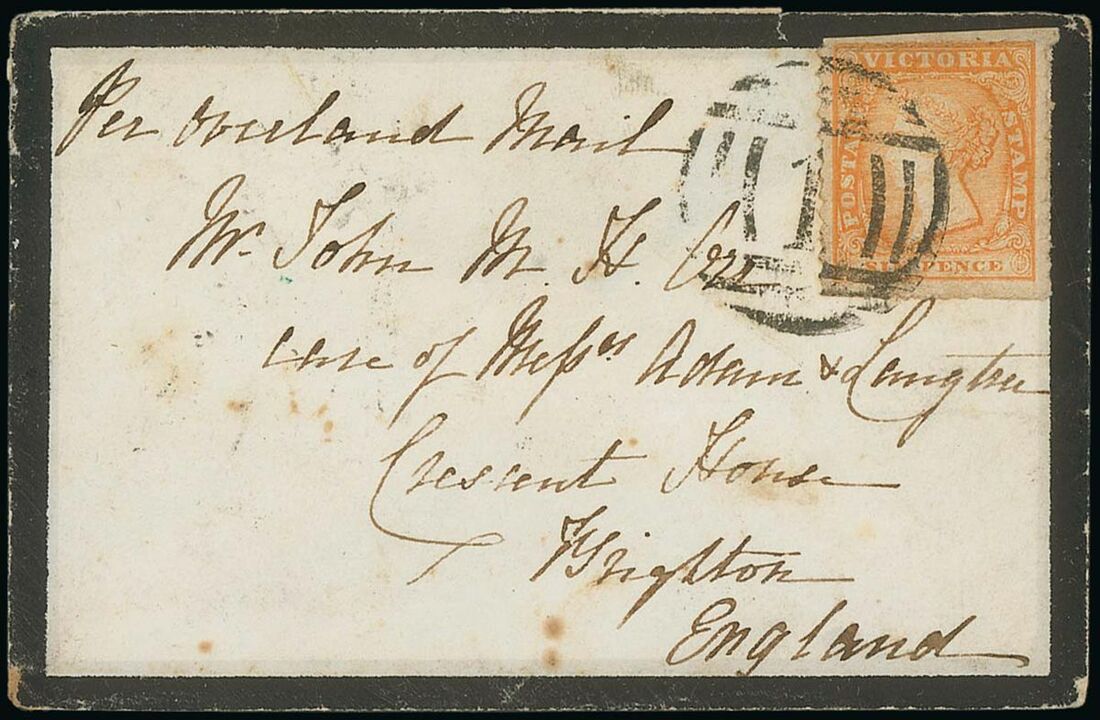 VICTORIA
POSTAGE STAMP
SIXPENCE
1
Per Overland Mail
Mr. John M. H. Orr
care of Messrs Adam & Langtree
Crescent House
Brighton
England